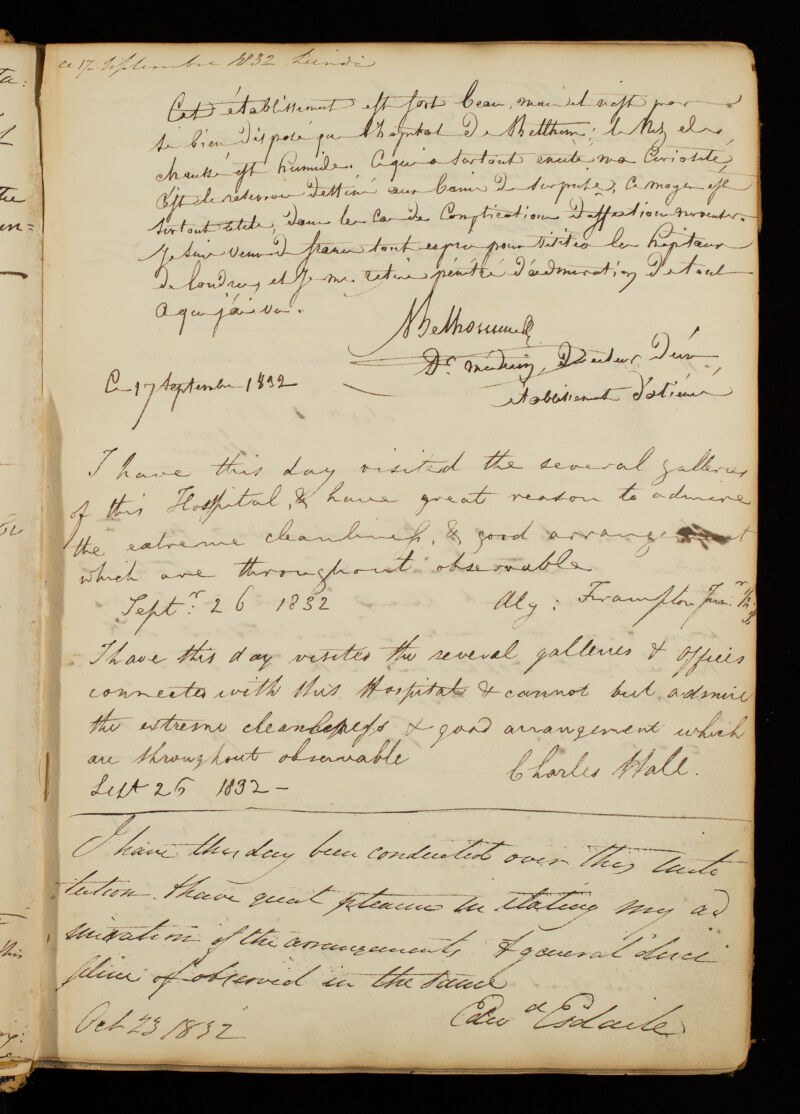 ce 17 septembre 1832 Lundi
Cet établissement est fort beau, mais il n'est pas
si bien disposé que l'hopital de Bethlem; le Rez de
chaussé est humide. Ce qui a surtout excité ma curiosité,
C'est le réservoir destiné aux bains de surprise, ce moyen est
surtout utile, dans le cas de Complication d'affection
Je suis venu de france tout exprès pour visiter les hôpitaux
de Londres, et je me retire pénétré d'admiration de tout
ce que j'ai vu.
Dr. médecin, Directeur d'un
Ce 17 Septembre 1832
établissement d'aliénés
I have this day visited the several galleries
of this Hospital, & have great reason to admire
the extreme cleanliness, & good arrangement
which are throughout observable
Septr. 26 1832
Alg: Frampton Junr.
I have this day visited the several galleries & offices
connected with this Hospital & cannot but admire
the extreme cleanliness & good arrangement which
are throughout observable
Charles Hall.
Sept 26 1832 -
I have this day been conducted over this Insti
tution I have great pleasure in stating my ad
miration of the arrangements & general disci
pline of observed in the same
Edwd Esdaile
Oct 23 1832
ta:
the
this